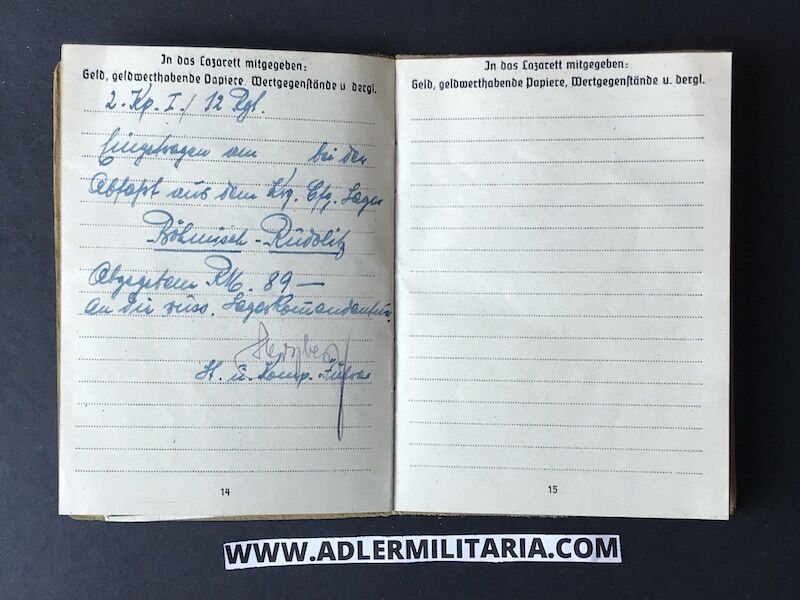 In das Lazarett mitgegeben:
Geld, geldwerthabende Papiere, Wertgegenstände u. dergl.
2. Kp. I / 12 Rgt.
Eingetragen am bei der
Abfahrt aus dem Krg. Gfg. Lager
Böhmisch - Rudolitz
Abgegeben RM. 89 —
an die russ. Lagerkomandantur
u. Komp.
14
In das Lazarett mitgegeben:
Geld, geldwerthabende Papiere, Wertgegenstände u. dergl.
15
WWW.ADLERMILITARIA.COM